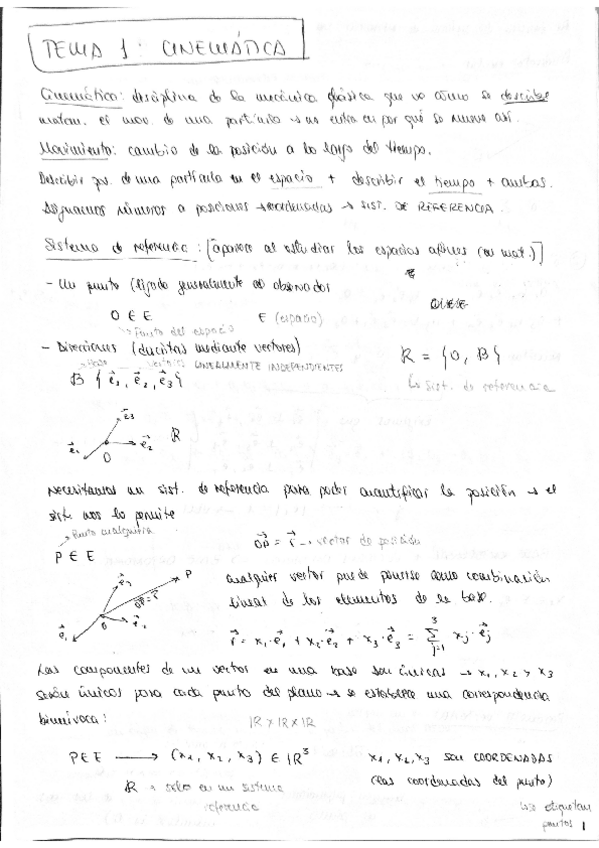 TEMA 1: CINEMÁTICA
Cinemática: disciplina de la mecánica clásica que ve cómo se describe
matem. el mov. de una partícula → no entra en por qué se mueve así.
Movimiento: cambio de la posición a lo largo del tiempo.
Describir pos. de una partícula en el espacio + describir el tiempo + ambas.
Asignamos números a posiciones → coordenadas → SIST. DE REFERENCIA.
Sistema de referencia: [aparece al estudiar los espacios afines (en mat.)]
- Un punto (ligado generalmente al observador
O ∈ E E (espacio)
Punto del espacio
- Direcciones (descritas mediante vectores)
Base vectores LINEALMENTE INDEPENDIENTES
B {e⃗1, e⃗2, e⃗3} R = {O, B}
Sist. de referencia
e⃗3
e⃗1 e⃗2 R
O
Necesitamos un sist. de referencia para poder cuantificar la posición → el
sist. nos lo permite
Punto cualquiera
P ∈ E OP⃗ = r⃗ → vector de posición
e⃗3 P
OP⃗ = r⃗
e⃗1 O
cualquier vector puede ponerse como combinación
lineal de los elementos de la base.
r⃗ = x1·e⃗1 + x2·e⃗2 + x3·e⃗3 = Σ xj·e⃗j
3
j=1
Las componentes de un vector en una base son únicas → x1, x2 y x3
serán únicos para cada punto del plano → se establece una correspondencia
biunívoca: IR x IR x IR
P ∈ E → (x1, x2, x3) ∈ IR³ x1, x2, x3 son COORDENADAS
(las coordenadas del punto)
R → solo en un sistema
referencia
etiquetan
puntos 1